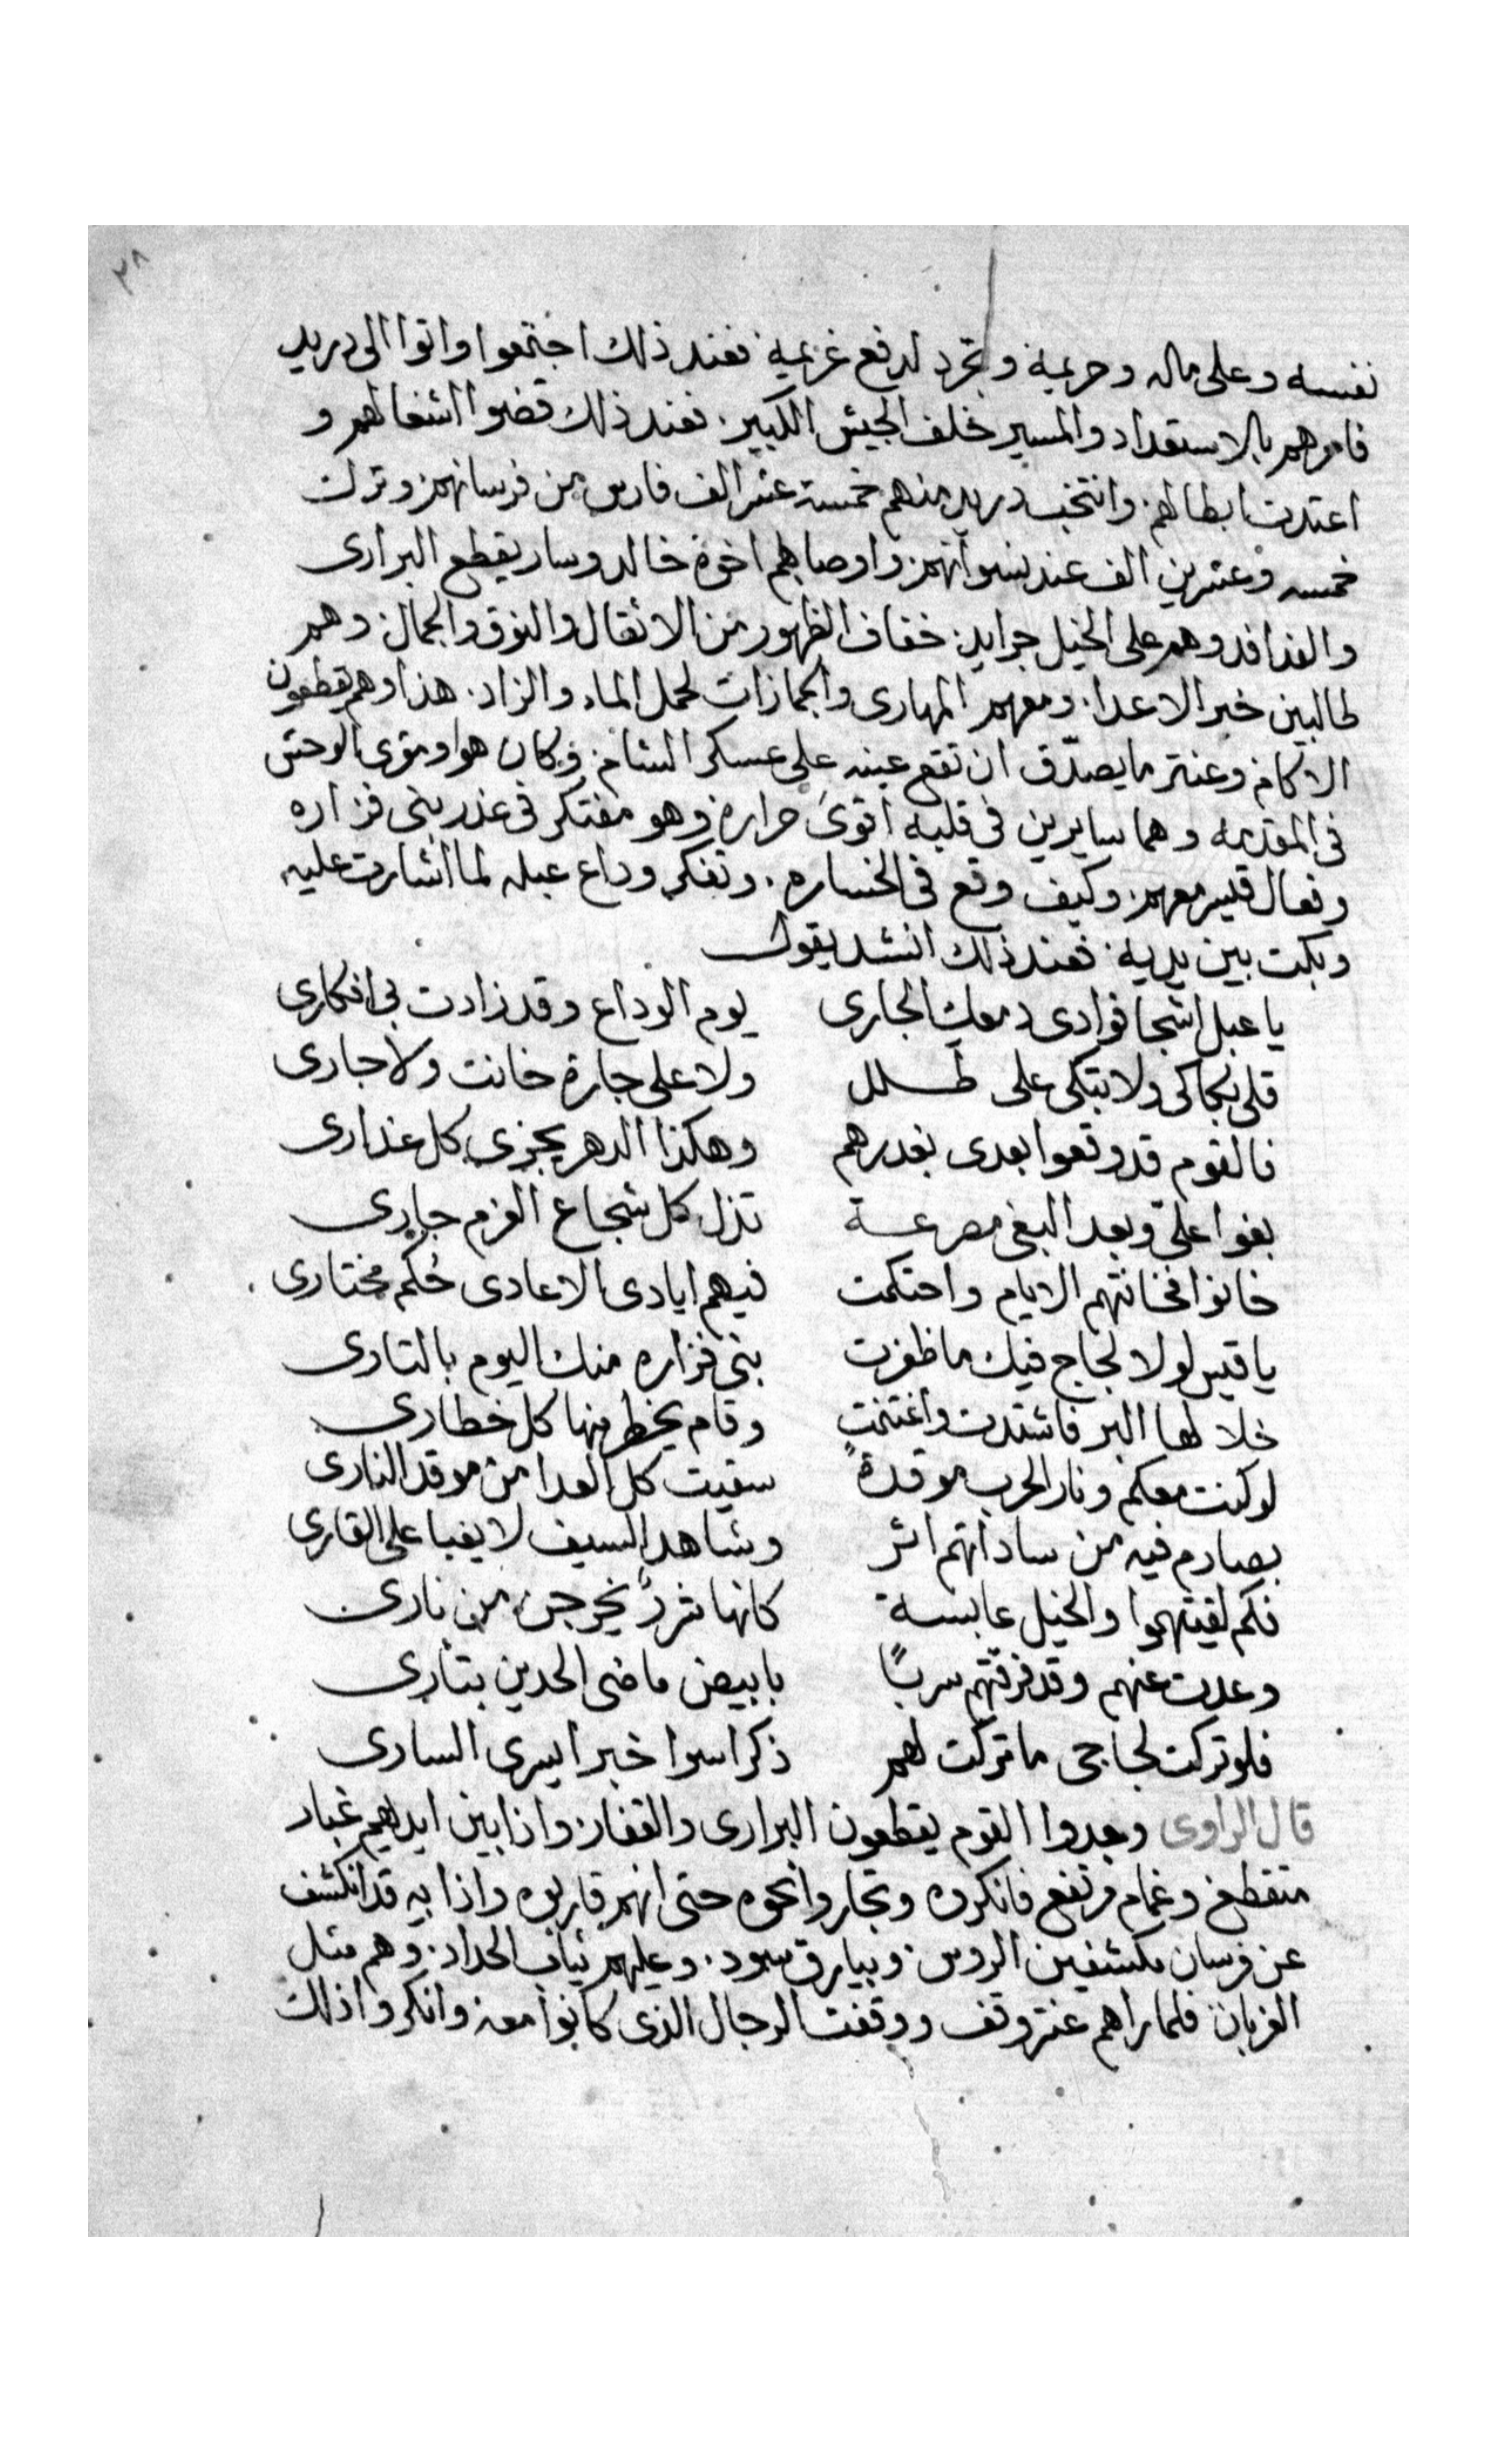 ٢٨
نفسه وعلى ماله وحريمه وتجرد لدفع غريمه فعند ذلك اجتمعوا واتوا الى دريد
فامرهم بالاستعداد والمسير خلف الجيش الكبير. فعند ذلك قضوا اشغالهم و
اعتدت ابطالهم. وانتخب دريد منهم خمسة عشر الف فارس من فرسانهم وترك
خمسه وعشرين الف عند نسوانهم. واوصاهم اخوة خالد وسار يقطع البرارى
والفدافد وهم على الخيل جرايد. خفاف الظهور من الاثقال والنوق والجمال. وهم
طالبين خبر الاعدا. ومعهم المهارى والجمازات لحمل الماء والزاد. هذا وهم يقطعون
الاكام وعنتر ما يصدّق ان تقع عينه على عسكر الشام. وكان هوا ومقرى الوحش
فى المقدمه وهما سايرين فى قلبه اقوى حراره وهو مفتكر فى غدر بنى فزاره
وفعال قيس معهم. وكيف وقع فى الخساره. وتفكر وداع عبله لما اشارت عليه
وبكت بين يديه. فعند ذلك انشد يقول
يا عبل اشجا فوادى دمعك الجارى يوم الوداع وقد زادت بى افكارى
قلى بكاكى ولا بتكى على طلل ولا على جارة خانت ولا جارى
فالقوم قد وقعوا بعدى بغدرهم وهكذا الدهر يجزى كل غدارى
بغوا علىّ وبعد البغى مصرعة تذل كل شجاع العزم جارى
خانوا فخانتهم الايام واحتكمت فيهم ايادى الاعادى حُكم مختارى
يا قيس لولا لجاج فيك ما ظفرت بنى فزاره منك اليوم بالتارى
خلا لها البر فاشتدت واغتنمت وقام يخطر منها كل خطارى
لو كنت معكم ونار الحرب موقدةً سقيت كل العدا من موقد النارى
بصارم فيه من ساداتهم اثر وشاهد السيف لا يغبا على القارى
فكم لقيتهموا والخيل عابسة كانها شررٌ يخرجن من نارى
وعدت عنهم وقد فرقتهم سربًا بابيض ماضى الحدين بتارى
فلو تركت لجاجى ما تركت لهم ذكرا سوا خبرا يسرى السارى
قال الراوى وجدوا القوم يقطعون البرارى والقفار. واذا بين ايديهم غبار
متقطع وغمام مرتفع فانكروه وتجاروا نحوه حتى انهم قاربوه واذا به قد انكشف
عن فرسان مكشفين الروس. وبيارق سود. وعليهم ثياب الحداد. وهم مثل
الغربان فلما راهم عنتر وقف ووقفت الرجال الذى كانوا معه وانكروا ذلك